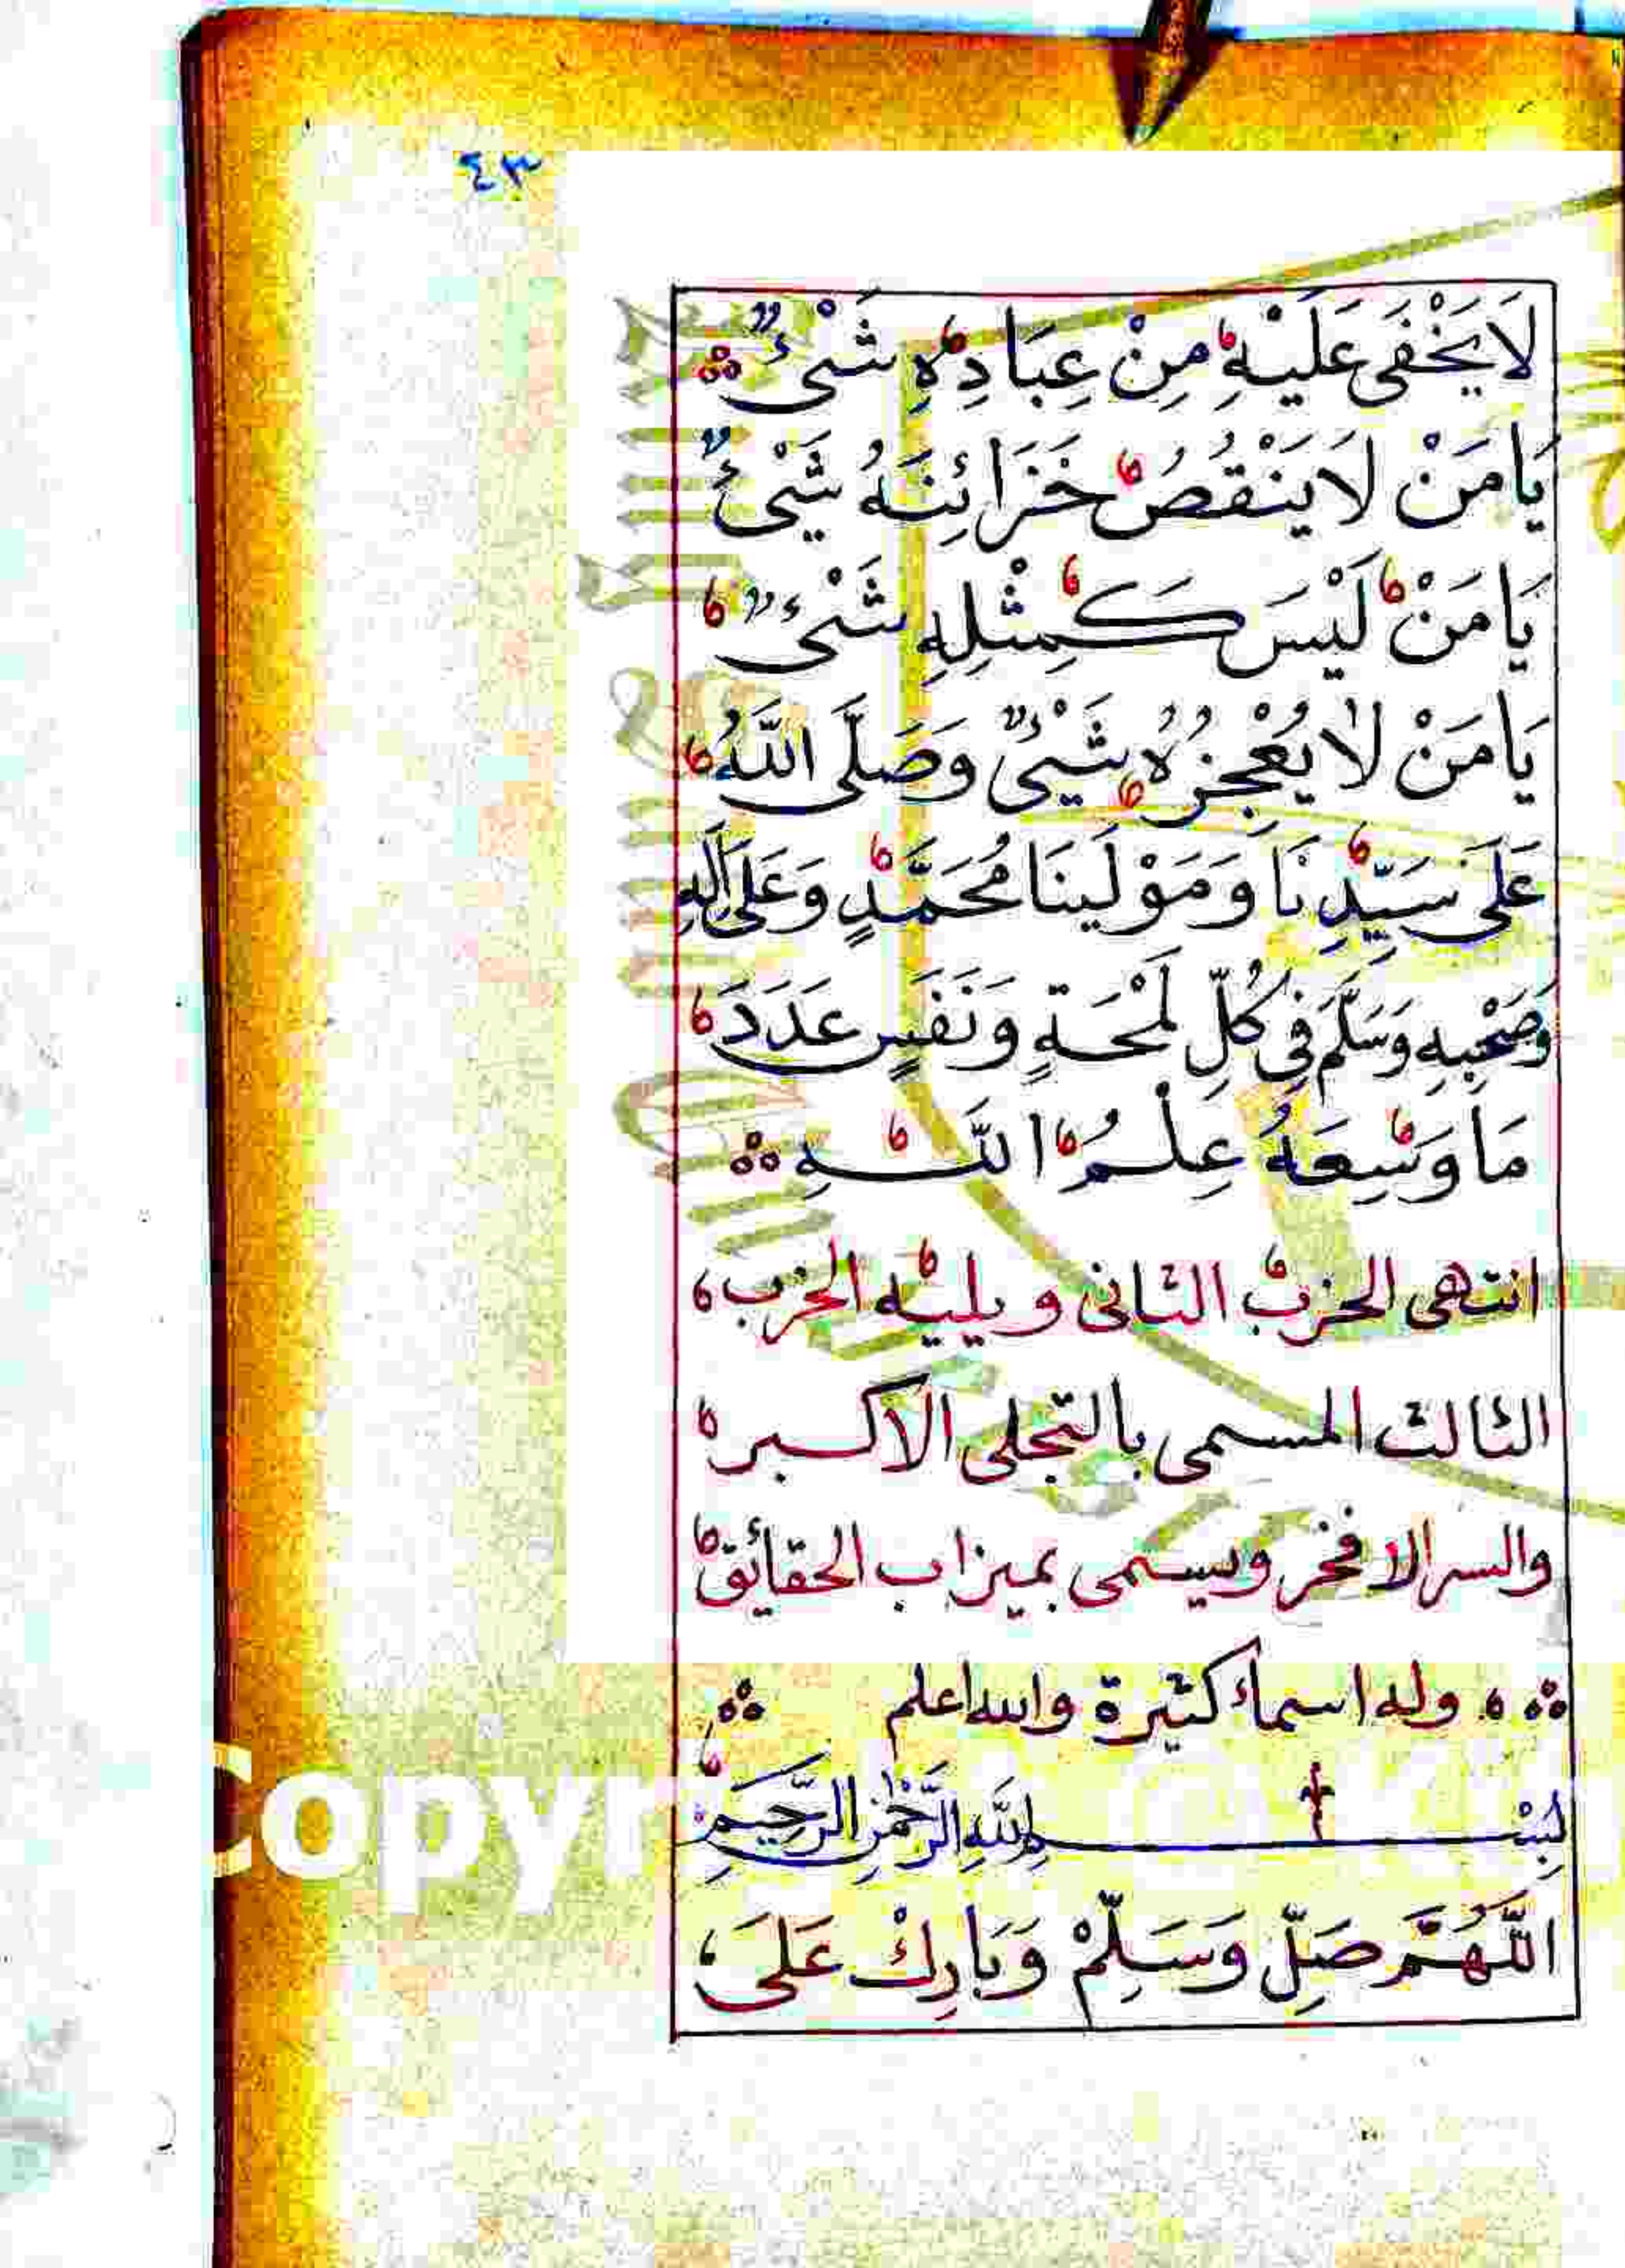 ٤٣
لَا يَخْفَى عَلَيْهِ مِنْ عِبَادِهِ شَيْئٌ
يَا مَنْ لَا يَنْقُصُ خَزَائِنَهُ شَيْئٌ
يَا مَنْ لَيْسَ كَمِثْلِهِ شَيْئٌ
يَا مَنْ لَا يُعْجِزُهُ شَيْئٌ وَصَلَّى اللَّهُ
عَلَى سَيِّدِنَا وَمَوْلَينَا مُحَمَّدٍ وَعَلَى اٰلِهِ
وَصَحْبِهِ وَسَلَّمَ فِي كُلِّ لَمْحَةٍ وَنَفَسٍ عَدَدَ
مَا وَسِعَهُ عِلْمُ اللَّهِ
انتهى الحزب الثانى ويليه الحزب
الثالث المسمى بالتجلى الاكبر
والسر الافخر ويسمى بميزاب الحقائق
وله اسماء كثيرة والله اعلم
بِسْمِ اللَّهِ الرَّحْمٰنِ الرَّحِيمِ
اللَّهُمَّ صَلِّ وَسَلِّمْ وَبَارِكْ عَلَى
Copyr